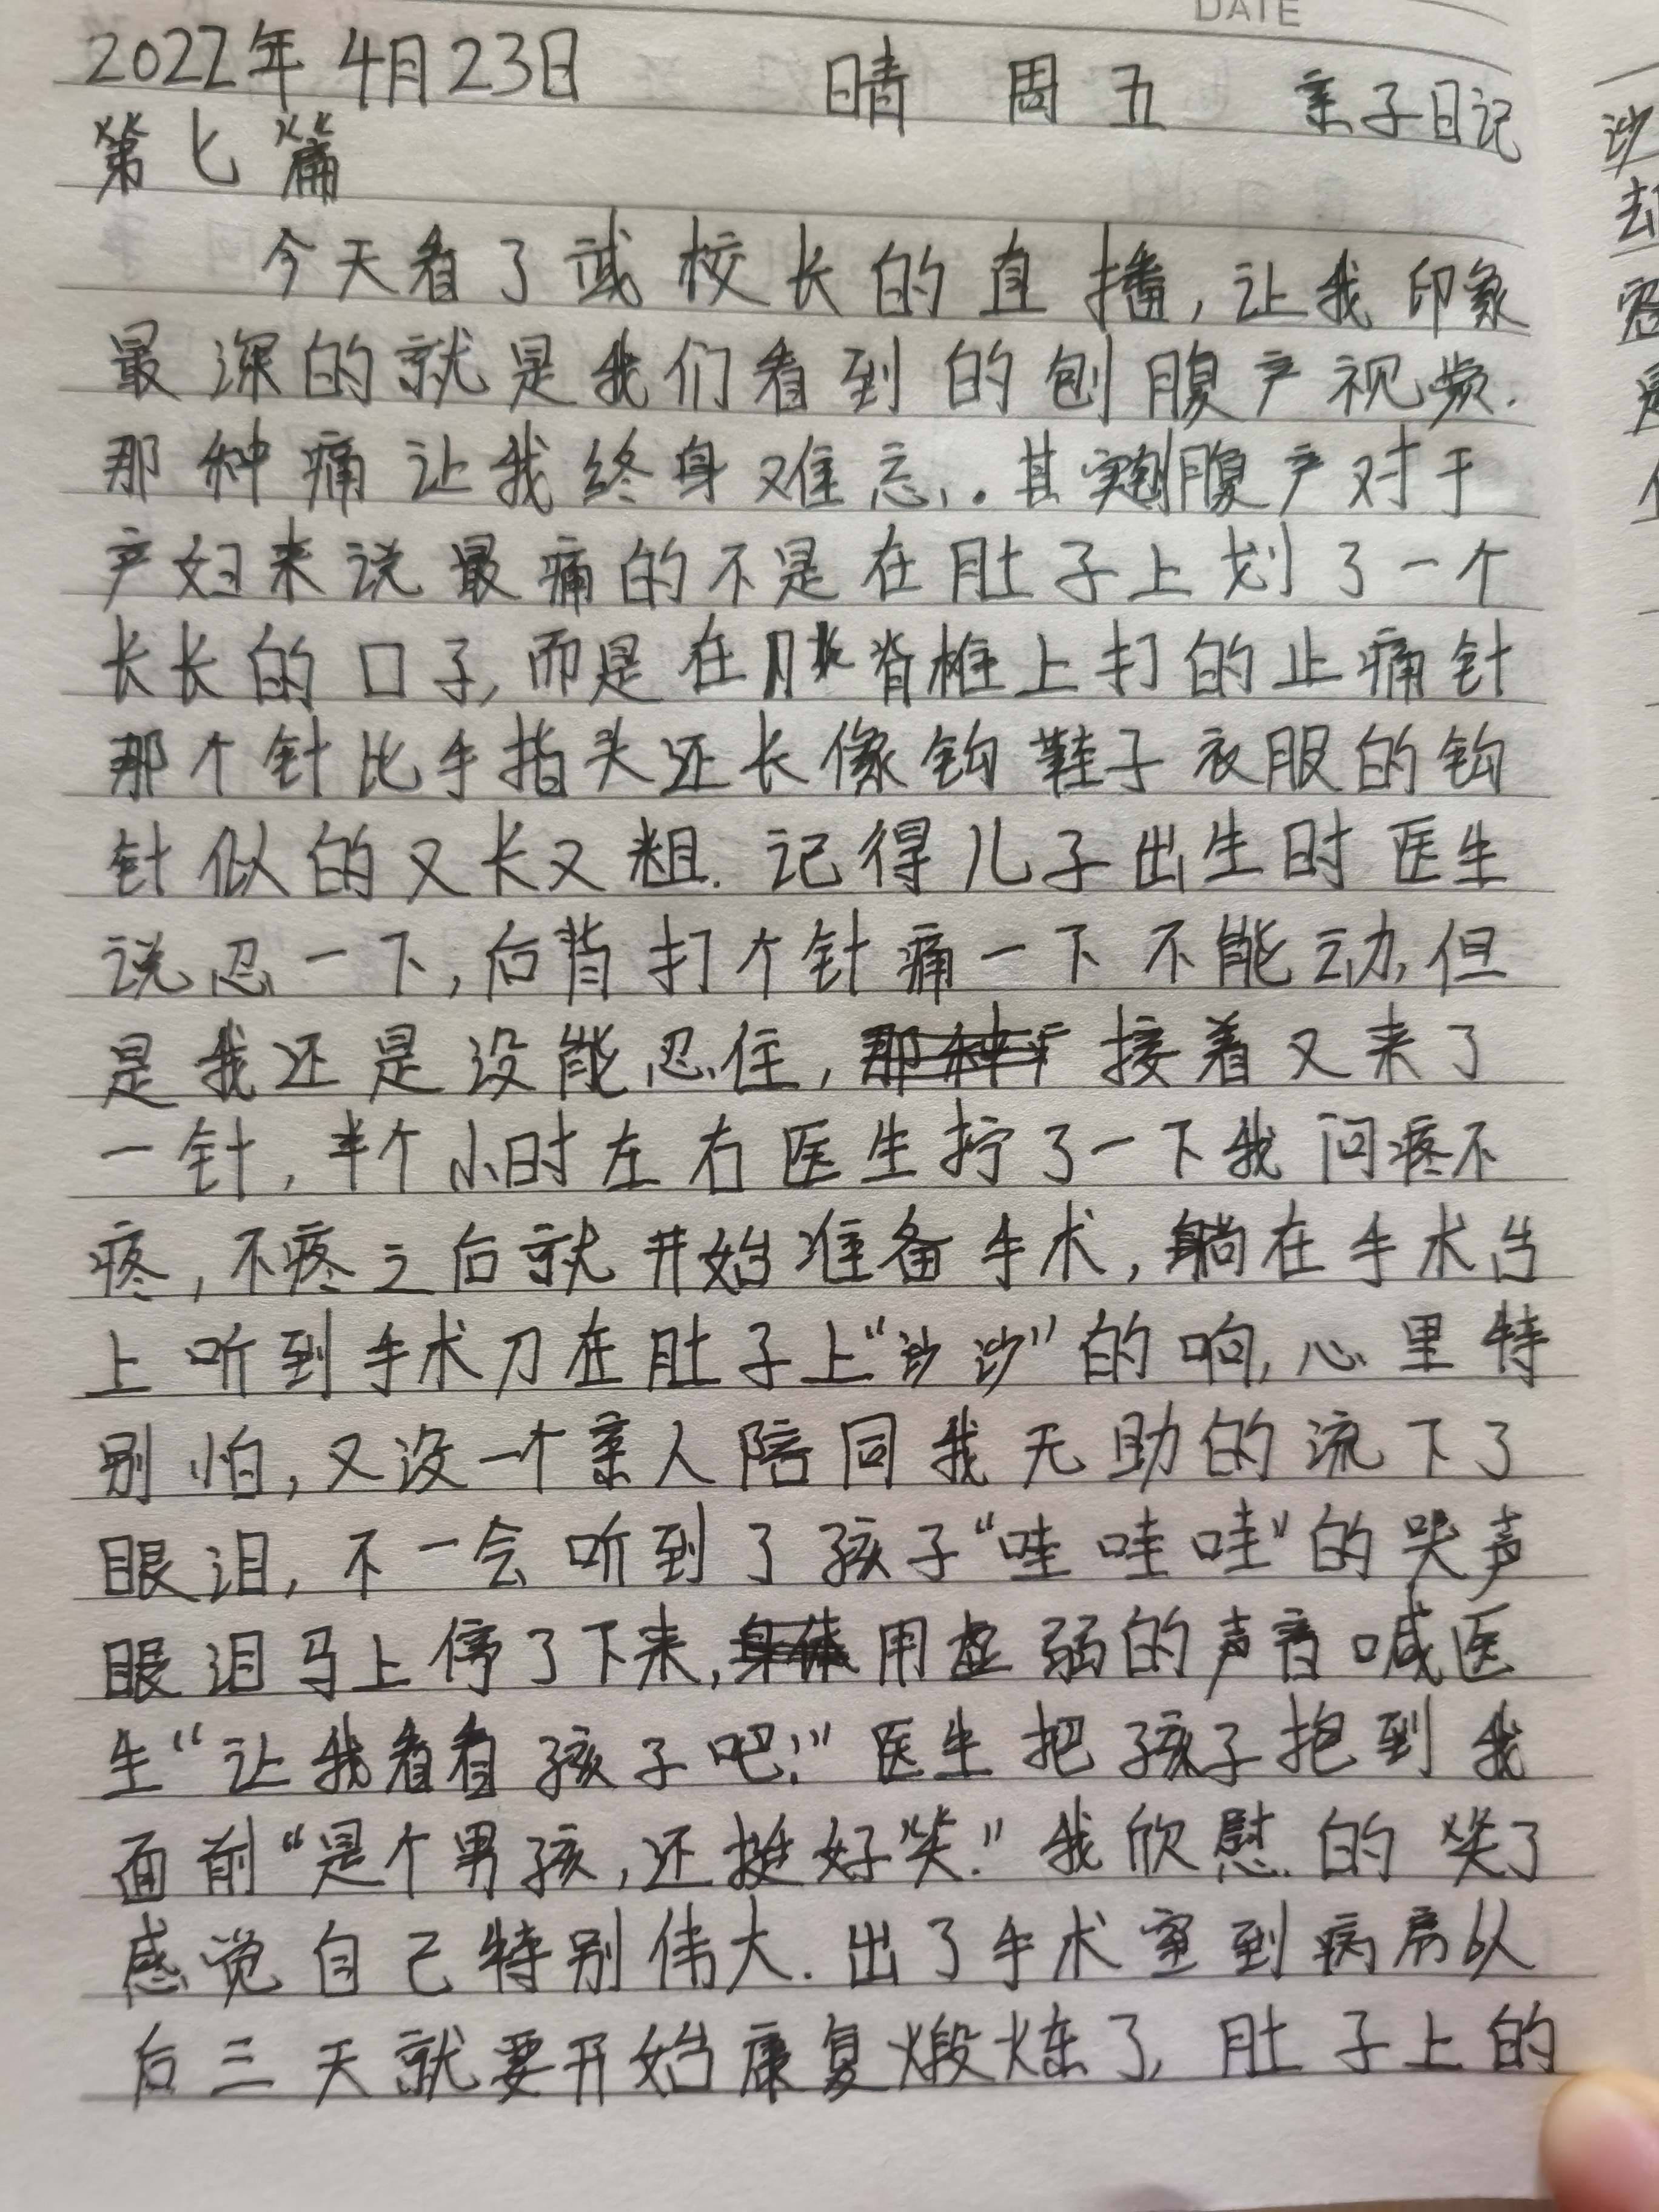 DATE
2022年4月23日 晴 周五 亲子日记
第七篇
今天看了 校长的直播，让我印象
最深的就是我们看到的刨腹产视频.
那种痛让我终身难忘，.其实刨腹产对于
产妇来说最痛的不是在肚子上划了一个
长长的口子,而是在 脊框上打的止痛针
那个针比手指头还长像钩鞋子衣服的钩
针似的又长又粗. 记得儿子出生时医生
说忍一下,后背打个针痛一下不能动,但
是我还是没能忍住,那种 接着又来了
一针,半个小时左右医生拧了一下我问疼不
疼,不疼之后就开始准备手术,躺在手术台
上听到手术刀在肚子上“沙沙”的响,心里特
别怕,又没一个亲人陪同我无助的流下了
眼泪,不一会听到了孩子“哇哇哇”的哭声
眼泪马上停了下来,身体用虚弱的声音喊医
生“让我看看孩子吧!”医生把孩子抱到我
面前“是个男孩,还挺好笑.”我欣慰的笑了
感觉自己特别伟大.出了手术室到病房以
后三天就要开始康复煅炼了,肚子上的